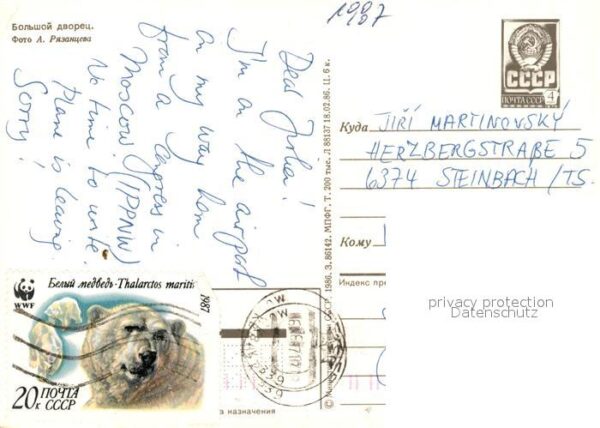 1987
Большой дворец.
Фото А. Рязанцева
Dear Jirka!
I'm on the airport
on my way home
from a congress in
Moscow (IPPNW)
No time to write.
Plane is leaving.
Sorry!
© Министерство связи СССР. 1986. З. 86142. МПФГ. Т. 200 тыс. Л 88137 18.02.86. Ц. 6 к.
СССР
ПОЧТА СССР 4
Куда JIŘÍ MARTINOVSKÝ
HERZBERGSTRAßE 5
6374 STEINBACH /TS.
Кому
Индекс пре
privacy protection
Datenschutz
WWF
Белый медведь·Thalarctos mariti
1987
20к ПОЧТА
СССР
а назначения